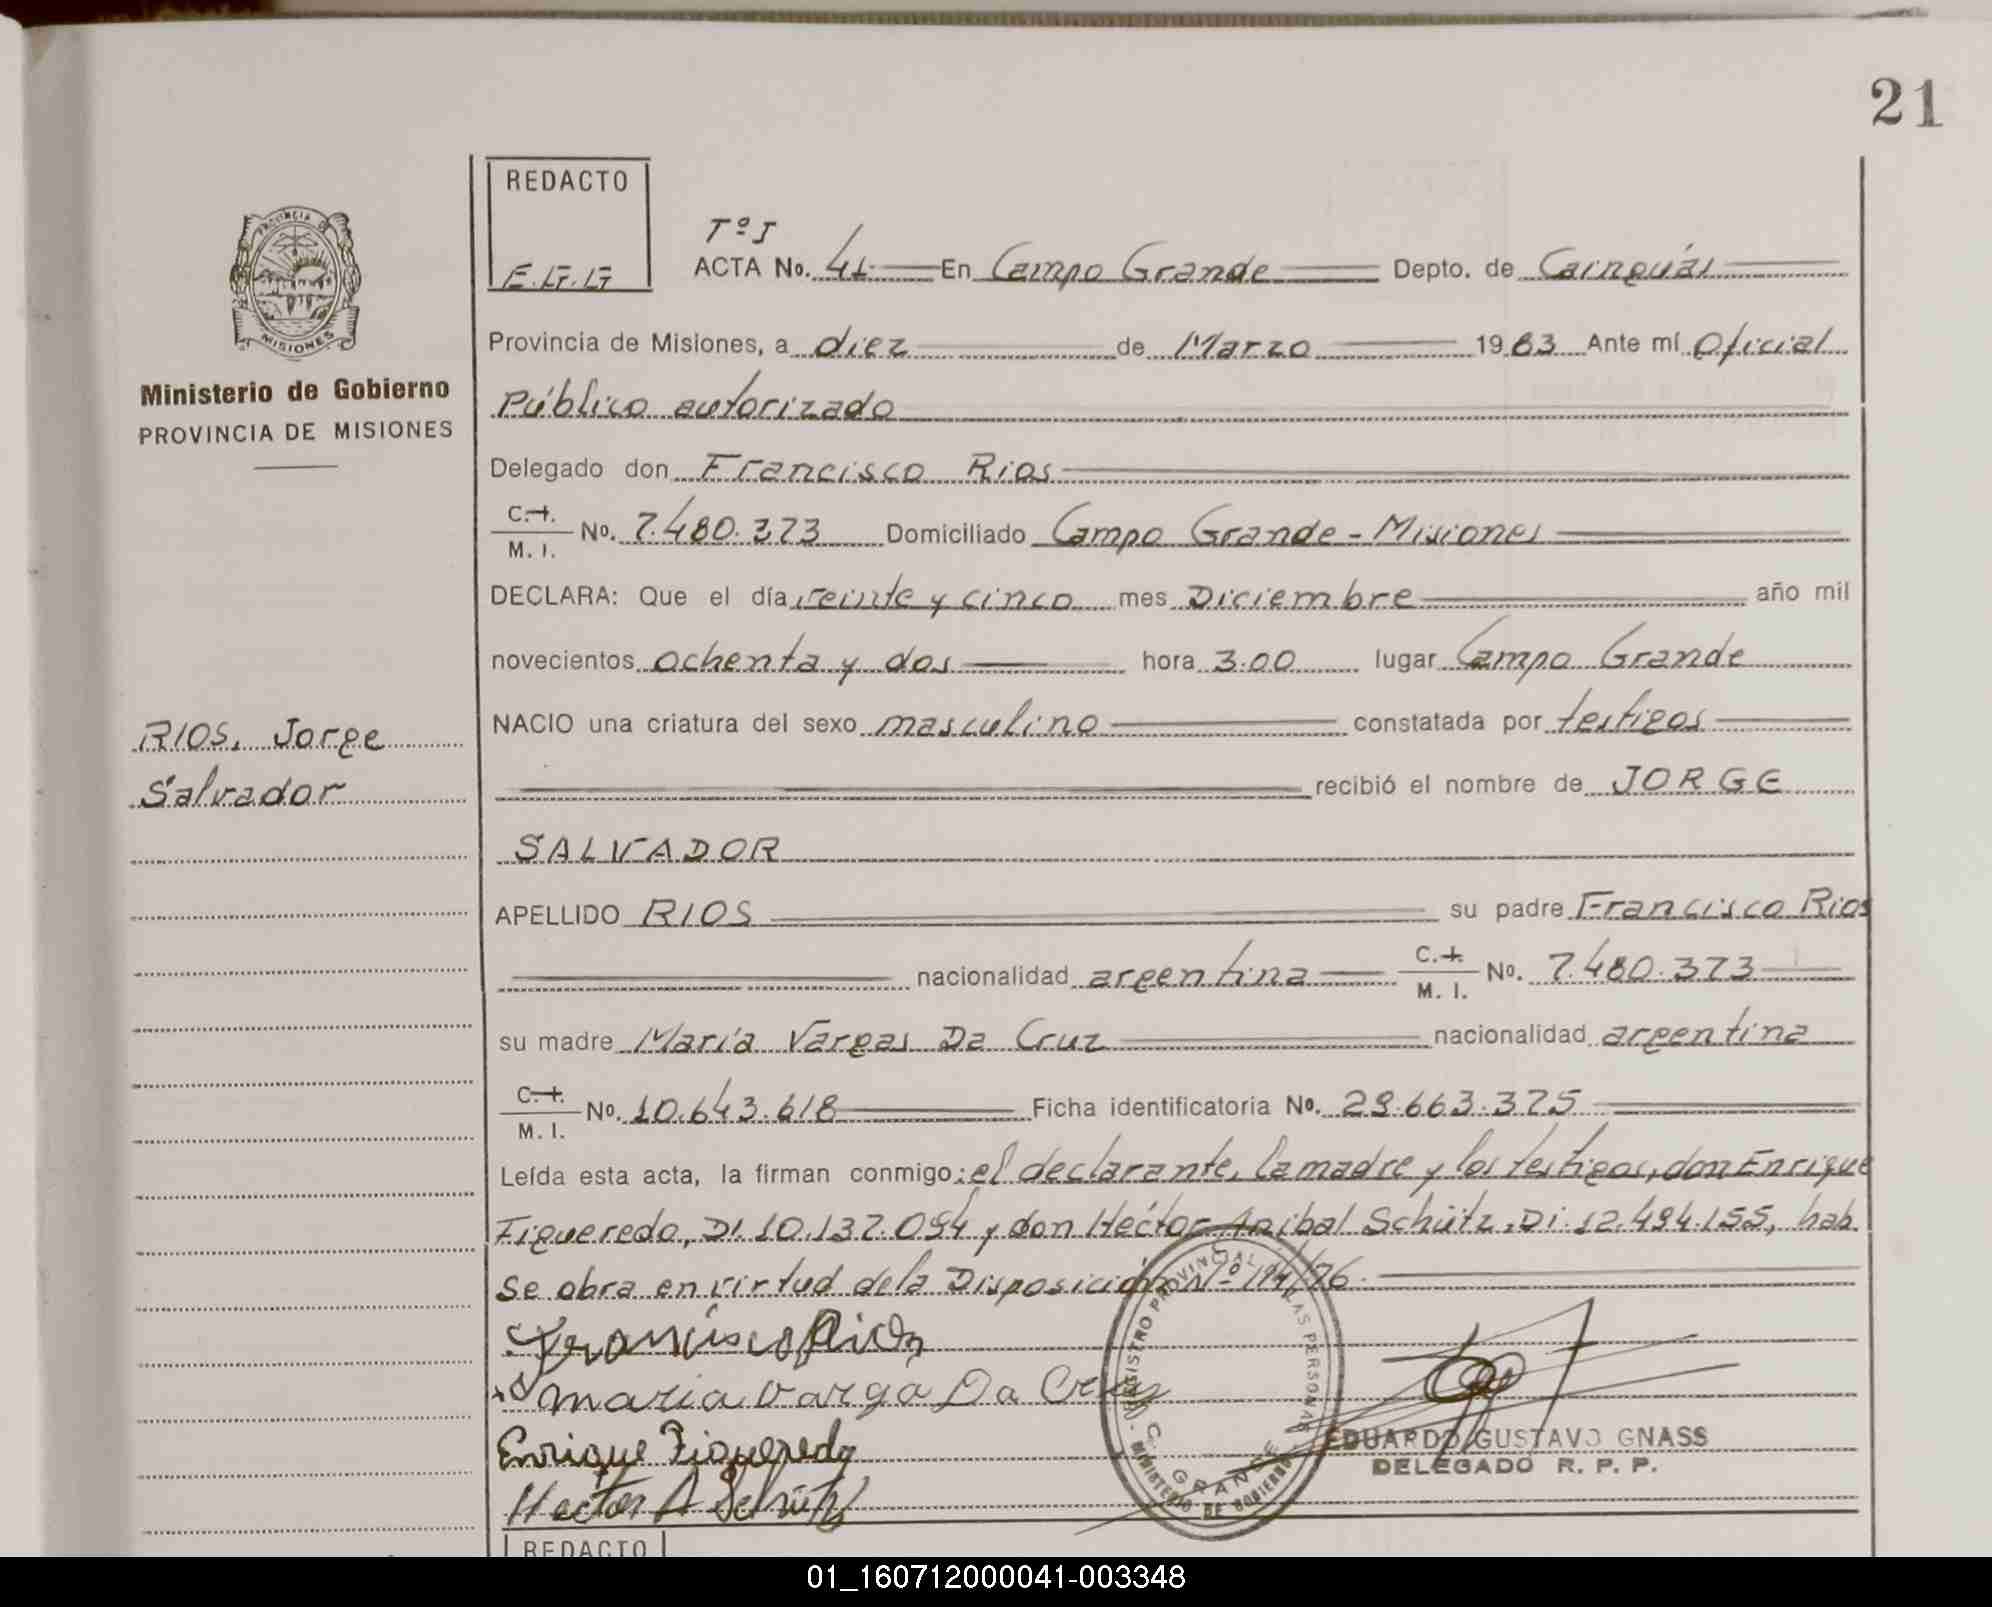 21
REDACTO
E.G.G
Tº I
ACTA No. 41 En Campo Grande Depto. de Cainguás
PROVINCIA
MISIONES
Ministerio de Gobierno
PROVINCIA DE MISIONES
Provincia de Misiones, a diez de Marzo 1983 Ante mí Oficial
Público autorizado
Delegado don Francisco Rios
C. I. M. I. No. 7.480.373 Domiciliado Campo Grande - Misiones
DECLARA: Que el día veinte y cinco mes Diciembre año mil
novecientos ochenta y dos hora 3.00 lugar Campo Grande
RIOS, Jorge
Salvador
NACIO una criatura del sexo masculino constatada por testigos
recibió el nombre de JORGE
SALVADOR
APELLIDO RIOS su padre Francisco Rios
nacionalidad argentina C. I. M. I. No. 7.480.373
su madre María Vargas Da Cruz nacionalidad argentina
C. I. M. I. No. 10.643.618 Ficha identificatoria No. 29.663.375
Leída esta acta, la firman conmigo: el declarante, la madre y los testigos, don Enrique
Figueredo, DI. 10.137.094 y don Héctor Anibal Schütz, DI. 12.494.155, hab.
Se obra en virtud de la Disposición Nº 194/76.
Francisco Rios
maria varga Da Cruz
Enrique Figueredo
Hector A Schütz
REGISTRO PROVINCIAL DE LAS PERSONAS
C. GRANDE
MINISTERIO DE GOBIERNO
EDUARDO GUSTAVO GNASS
DELEGADO R. P. P.
REDACTO
01_160712000041-003348